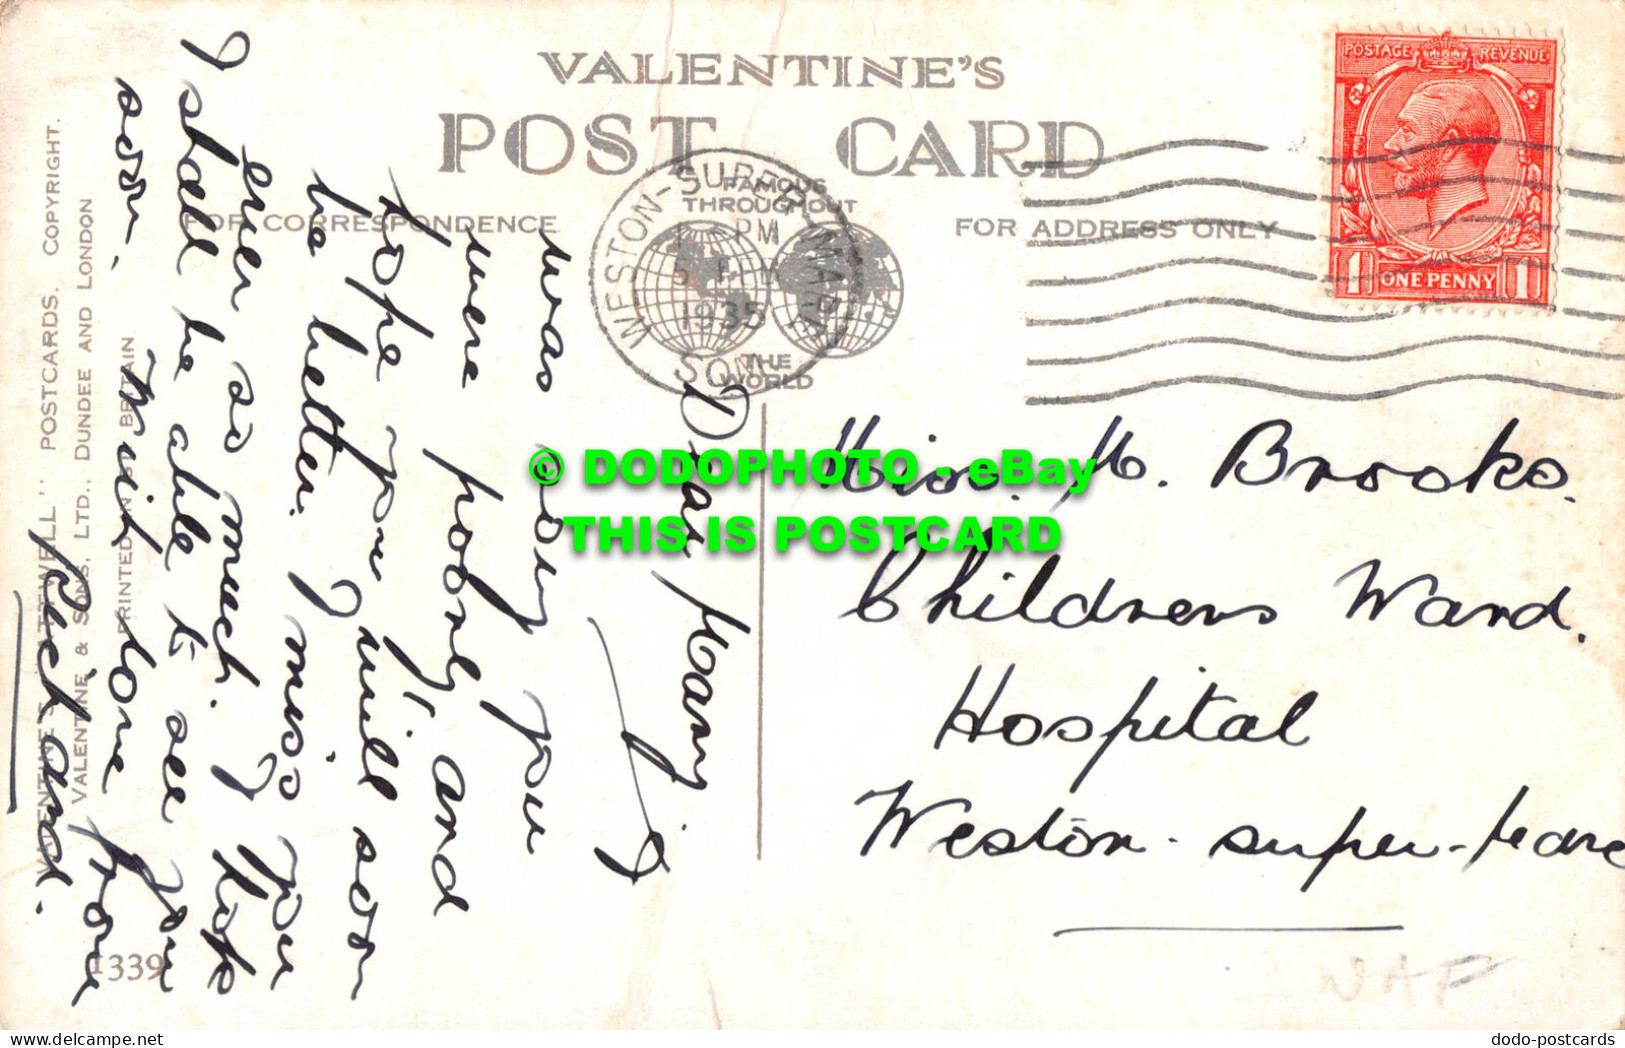 VALENTINE'S
POST CARD
FAMOUS
THROUGHOUT
THE
WORLD
FOR CORRESPONDENCE
FOR ADDRESS ONLY
WESTON-SUPER-MARE
SOM
PM
1935
POSTAGE REVENUE
1 ONE PENNY 1
Dear Mary
I
was sorry you
were poorly and
hope you will soon
be better. I miss you
ever so much. I hope
I shall be able to see you
soon.
Much love from
Richard.
Miss. M. Brooks.
Childrens Ward.
Hospital
Weston-super-Mare
© DODOPHOTO - eBay
THIS IS POSTCARD
POSTCARDS. COPYRIGHT.
VALENTINE & SONS, LTD., DUNDEE AND LONDON
PRINTED IN BRITAIN
1339
WAP
dodo-postcards